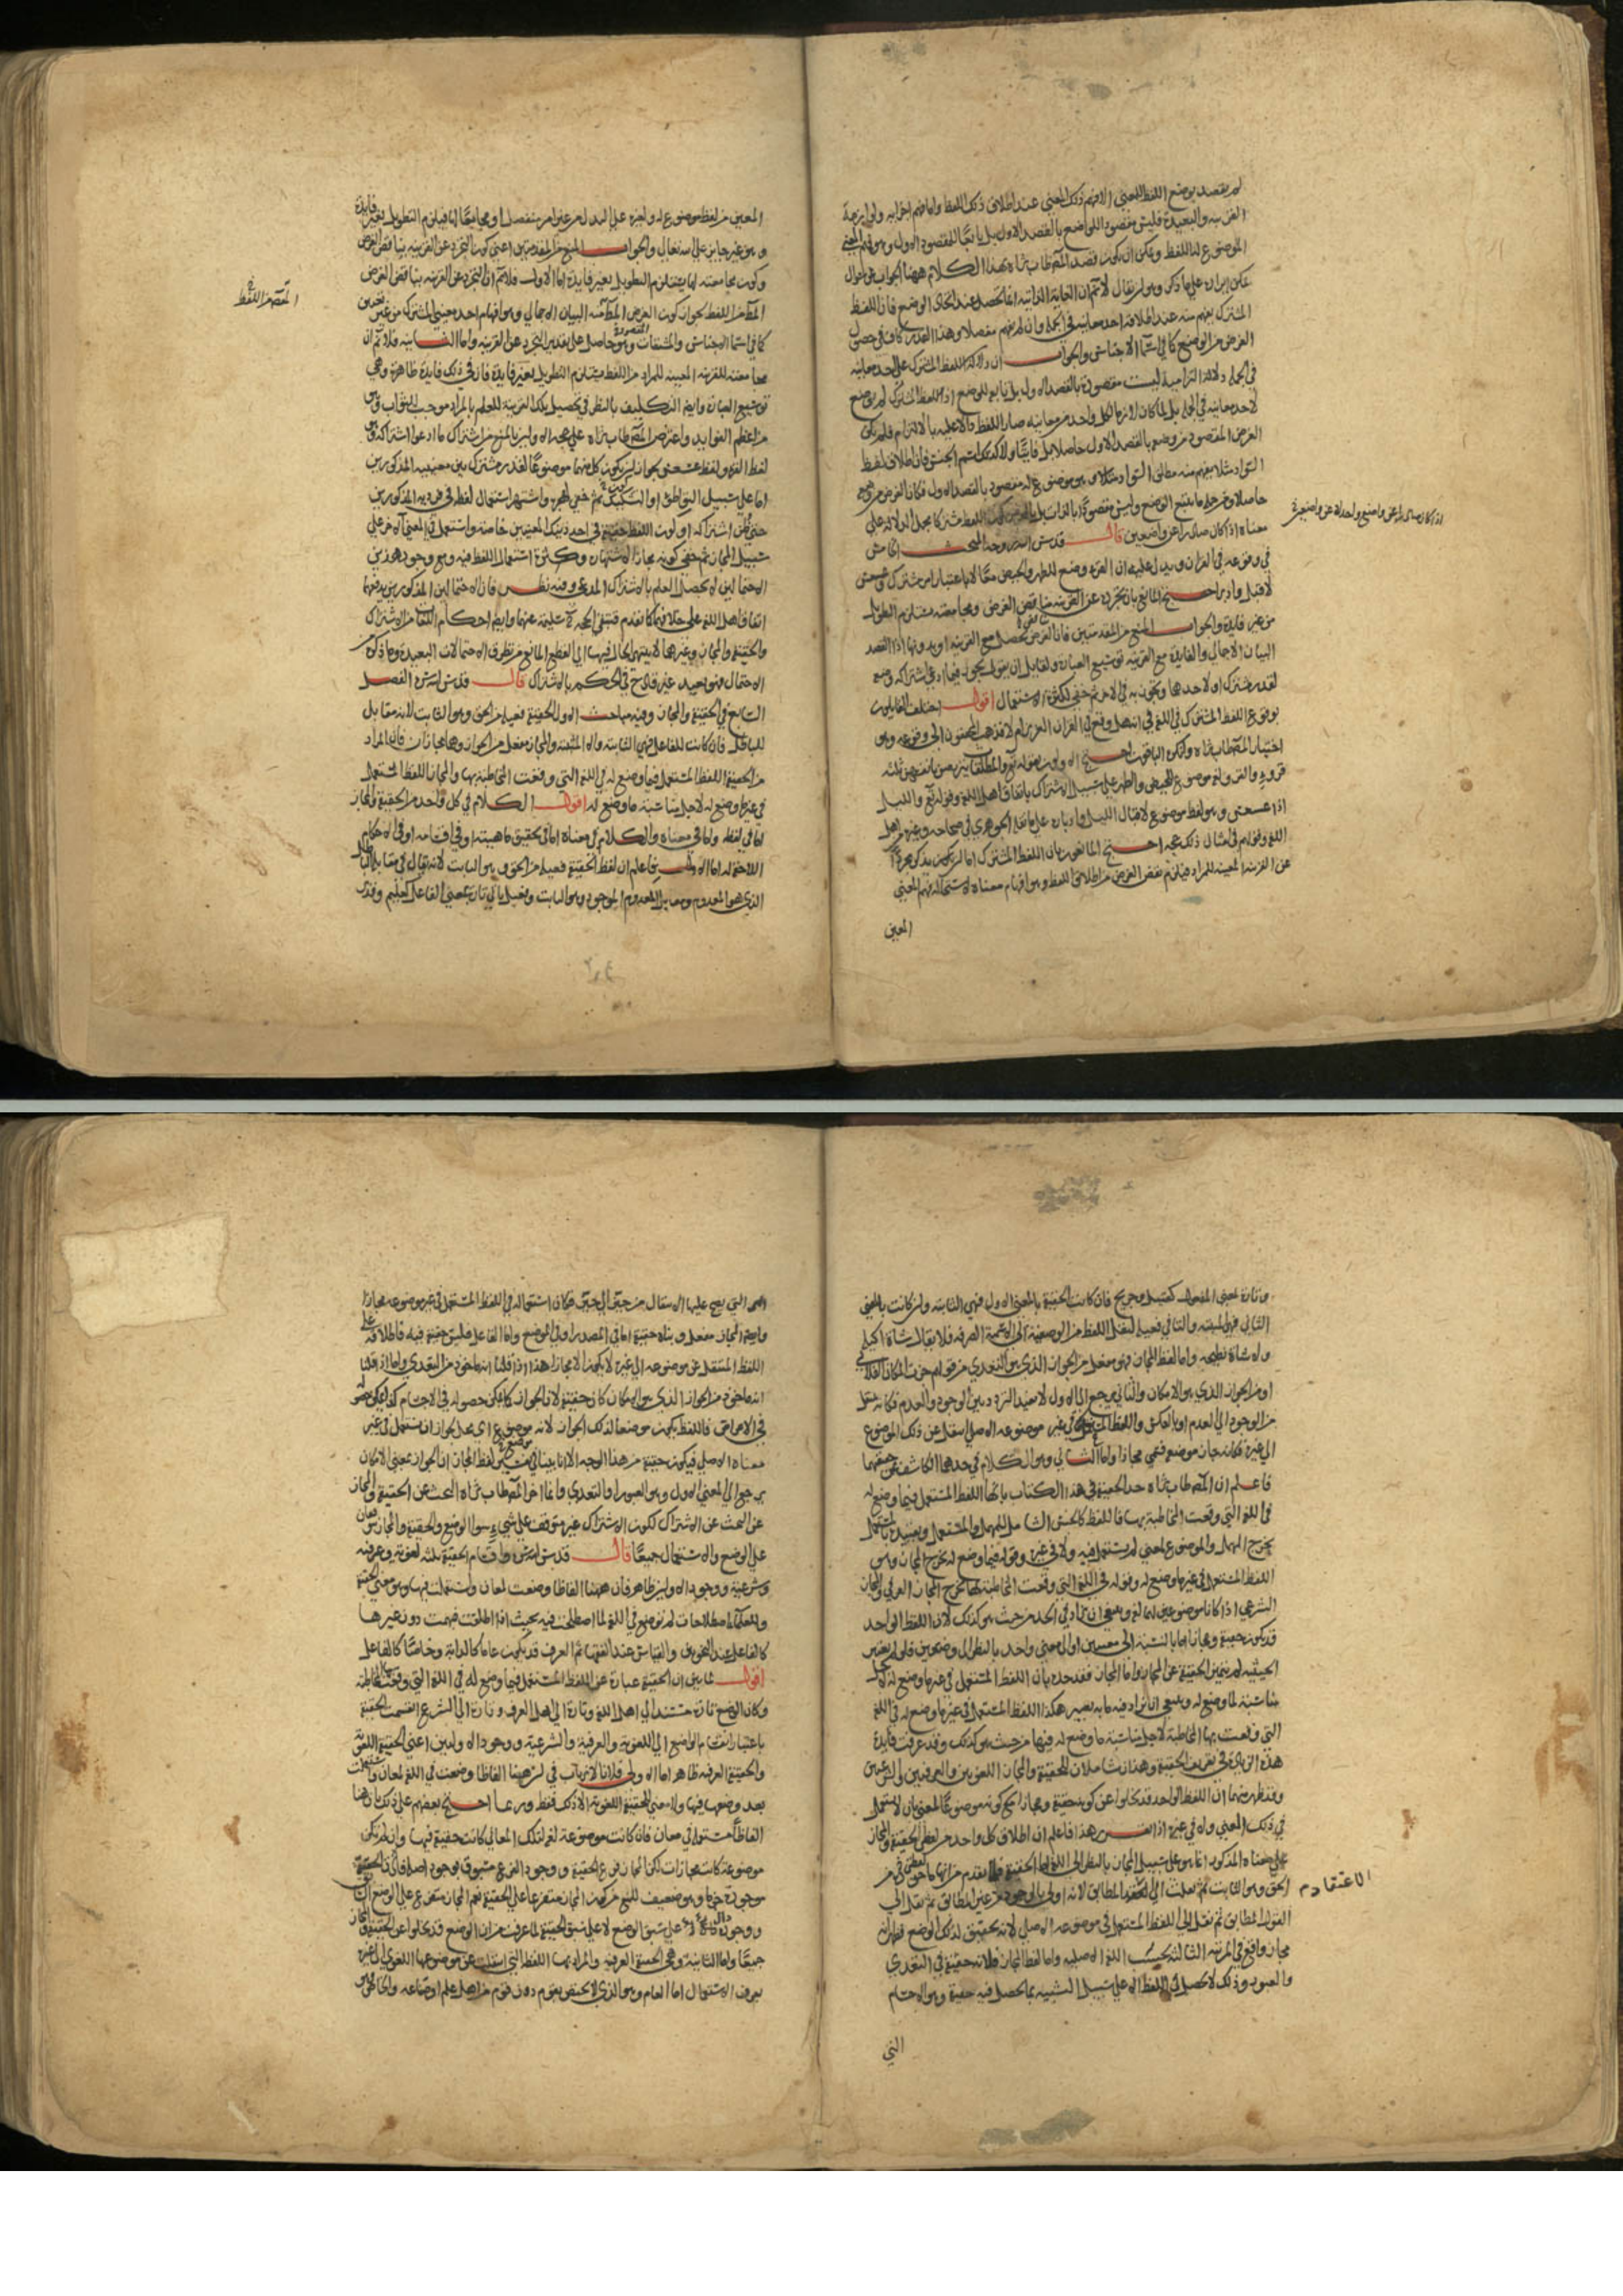 لم يقصد بوضع اللفظ للمعنى الا فهم ذلك المعنى عند اطلاق ذلك اللفظ واما فهم
القريبة والبعيدة فليس مقصودا للواضع بالقصد الاول بل تابعا للمقصود الاول وهو فهم المعنى
الموضوع له اللفظ ويمكن ان يكون قصد المصنف طاب ثراه بهذا الكلام ههنا الجواب عن سؤال
يمكن ايراده على ما ذكره وهو ان يقال لا نسلم ان الغاية الذاتية انما تحصل عند اتحاد الوضع فان اللفظ
المشترك يفهم منه عند اطلاقه احد معانيه في الجملة وان لم يفهم مفصلا وهذا القدر كاف في حصول
الغرض من الوضع كما في اسماء الاجناس والجواب ان دلالة اللفظ المشترك على احد معانيه
في الجملة دلالة التزامية ليست مقصودة بالقصد الاول بل تابع للوضع اذ اللفظ المشترك لم يوضع
لاحد معانيه في الجملة بل لما كان لازما لكل واحد من معانيه صار اللفظ دالا عليه بالالتزام فلم يكن
الغرض المقصود من وضعه بالقصد الاول حاصلا بل فايتا ولا كذلك اسم الجنس فان اطلاق لفظ
السواد مثلا يفهم منه مطلق السواد مثلا وهو موضوع له مقصود بالقصد الاول فكان الغرض من وضعه
حاصلا ومن جملة ما يتبع الوضع وليس مقصودا بالذات بل بالعرض كون اللفظ مشتركا مجمل الدلالة على
معناه اذا كان صادرا عن واضعين قال قدس الله روحه المبحث الخامس
في وقوعه في القران ويدل عليه ان القرء وضع للطهر والحيض معا لا باعتبار امر مشترك وعسعس
لاقبل وادبر احتج المانع بان تجرده عن القرينة يناقض الغرض ومجامعته يستلزم التطويل
من غير فايدة والجواب المنع من المقدمتين فان الغرض يحصل مع القرينة او بدونها اذا القصد
البيان الاجمالي والفايدة مع القرينة توسيع العبارة ولقايل ان يقول يجوز فيما ادعي اشتراكه وضع
لقدر مشترك او لاحدهما ويجوز به في الاخر ثم خفي لكثرة الاستعمال اقول اختلف القايلون
بوقوع اللفظ المشترك في اللغة في انه هل وقع في القران العزيز ام لا فذهب المحققون الى وقوعه وهو
اختيار المصنف طاب ثراه وانكره الباقون احتج الاولون بقوله تعالى والمطلقات يتربصن بانفسهن ثلثة
قروء والقرء في اللغة موضوع للحيض والطهر على سبيل الاشتراك باتفاق اهل اللغة وقوله تعالى والليل
اذا عسعس وهو لفظ موضوع لاقبال الليل وادباره على ما نقله الجوهري في صحاحه وغيره من اهل
اللغة وقولهم في امثال ذلك حجة احتج المانعون بان اللفظ المشترك اما ان يكون يذكر مجردا
عن القرينة المعينة للمراد فيلزم نقض الغرض من اطلاق اللفظ وهو افهام معناه لاستحالة فهم المعنى
المعين
اذا كان صادرا عن واضع واحد لا عن واضعين
المعين من لفظ موضوع له ولغيره على البدل من غير امر منفصل او مجامعا لها فيلزم التطويل بغير فايدة
وهو غير جايز على الله تعالى والجواب المنع من المقدمتين اعني كون التجرد عن القرينة يناقض الغرض
وكون مجامعته لها يستلزم التطويل بغير فايدة اما الاولى فلا نسلم ان التجرد عن القرينة يناقض الغرض
المقصود من اللفظ لجواز كون الغرض المقصود منه البيان الاجمالي وهو افهام احد معنيي المشترك من غير تعيين
كما في اسماء الاجناس والمشتقات وهو حاصل على تقدير التجرد عن القرينة واما الثانية فلا نسلم ان
مجامعته للقرينة المعينة للمراد من اللفظ يستلزم التطويل بغير فايدة فان في ذلك فايدة ظاهرة وهي
توسيع العبارة وايضا التكليف بالنظر في تحصيل تلك القرينة للعلم بالمراد موجب للثواب وهو
من اعظم الفوايد واعترض المصنف طاب ثراه على حجة الاولين بالمنع من اشتراك ما ادعوا اشتراكه وهو
لفظ القرء ولفظ عسعس بجواز ان يكون كل منهما موضوعا لقدر مشترك بين معنييه المذكورين
اما على سبيل التواطؤ او التشكيك ثم خفي ذلك واشتهر استعمال لفظه في فرديه المذكورين
حتى ظن اشتراكه او كون اللفظ حقيقة في احد ذينك المعنيين خاصة واستعمل في المعنى الاخر على
سبيل المجاز ثم خفي كونه مجازا لاشتهاره وكثرة استعمال اللفظ فيه ومع وجود هذين
الاحتمالين لا يحصل العلم بالاشتراك المدعى وفيه نظر فان الاحتمالين المذكورين يدفعهما
اتفاق اهل اللغة على خلافهما كما تقدم فتبقى الحجة سليمة عنهما وايضا احكام اللغة من الاشتراك
والحقيقة والمجاز وغيرها لا ينتهي الحال فيها الى القطع المانع من تطرق الاحتمالات البعيدة وما ذكره من
الاحتمال فهو بعيد غير قادح في الحكم بالاشتراك قال قدس الله سره الفصل
السابع في الحقيقة والمجاز وفيه مباحث الاول الحقيقة فعيلة من الحق وهو الثابت لانه مقابل
للباطل فان كانت للفاعل فهي الثابتة والا المثبتة والمجاز مفعل من الجواز وهما مجازان فان المراد
من الحقيقة اللفظ المستعمل فيما وضع له في اللغة التي وقعت المخاطبة بها والمجاز اللفظ المستعمل
في غير ما وضع له لاجل مناسبة ما وضع له اقول الكلام في كل واحد من الحقيقة والمجاز
اما في لفظه واما في معناه والكلام في معناه اما في تحقيق ماهيته او في اقسامه او في الاحكام
اللاحقة له اما الاول فاعلم ان لفظ الحقيقة فعيلة من الحق وهو الثابت لانه يقال في مقابلة الباطل
الذي هو المعدوم ومقابل المعدوم الموجود وهو الثابت وفعيل ياتي تارة بمعنى الفاعل كعليم وقدير
المقصود من اللفظ
وتارة بمعنى المفعول كقتيل وجريح فان كانت الحقيقة بالمعنى الاول فهي الثابتة وان كانت بالمعنى
الثاني فهي المثبتة والتا في فعيلة لنقل اللفظ من الوصفية الى الاسمية الصرفة فلا يقال شاة اكيلة
ولا شاة نطيحة واما لفظ المجاز فهو مفعل من الجواز الذي هو التعدي من قولهم جزت المكان الفلاني
او من الجواز الذي هو الامكان والثاني يرجع الى الاول لانه يفيد التردد بين الوجود والعدم فكانه ينتقل
من الوجود الى العدم او بالعكس واللفظ المستعمل في غير موضوعه الاصلي انتقل عن ذلك الموضوع
الى غيره فكان جاز موضعه فسمي مجازا واما الثاني وهو الكلام في حدهما الكاشف عن حقيقتهما
فاعلم ان المصنف طاب ثراه حد الحقيقة في هذا الكتاب بانها اللفظ المستعمل فيما وضع له
في اللغة التي وقعت المخاطبة بها فاللفظ كالجنس الشامل للمهمل والمستعمل وبتقييده بالمستعمل
يخرج المهمل والموضوع لمعنى لم يستعمل فيه ولا في غيره وقوله فيما وضع له يخرج المجاز وهو
اللفظ المستعمل في غير ما وضع له وقوله في اللغة التي وقعت المخاطبة بها يخرج المجاز العرفي والمجاز
الشرعي اذا كانا موضوعين لهما لغة وينبغي ان يزاد في الحد من حيث هو كذلك لان اللفظ الواحد
قد يكون حقيقة ومجازا اما بالنسبة الى معنيين او الى معنى واحد بالنظر الى وضعين فلو لم يعتبر
الحيثية لم يتميز الحقيقة عن المجاز واما المجاز فقد حده بان اللفظ المستعمل في غير ما وضع له لاجل
مناسبة لما وضع له وينبغي ان يزاد فيه ما به يصير هكذا اللفظ المستعمل في غير ما وضع له في اللغة
التي وقعت بها المخاطبة لاجل مناسبة ما وضع له فيها من حيث هو كذلك وقد عرفت فايدة
هذه الزيادة في تعريف الحقيقة وهذان شاملان للحقيقة والمجاز اللغويين والعرفيين والشرعيين
وقد ظهر منهما ان اللفظ الواحد قد يخلوا عن كونه حقيقة ومجازا مع كونه موضوعا لمعنى بان لا يستعمل
في ذلك المعنى ولا في غيره اذا تقرر هذا فاعلم ان اطلاق كل واحد من لفظي الحقيقة والمجاز
على معناه المذكور انما هو على سبيل المجاز بالنظر الى اللغة اما الحقيقة فلما تقدم من انها ماخوذة من
الحق وهو الثابت ثم نقلت الى الاعتقاد المطابق لانه اولى بالوجود من غير المطابق ثم نقل الى
القول المطابق ثم نقل الى اللفظ المستعمل في موضوعه الاصلي لانه تحقيق لذلك الوضع فظهر انه
مجاز واقع في المرتبة الثالثة بحسب اللغة الاصلية واما لفظ المجاز فلانه حقيقة في التعدي
والعبور وذلك لا يحصل في اللفظ الا على سبيل التشبيه بما يحصل فيه حقيقة وهو الاجسام
التي
الاعتقاد
التي يصح عليها الانتقال من حيز الى حيز فكان استعماله في اللفظ المستعمل في غير موضوعه مجازا
وايضا المجاز مفعل وبناه حقيقة اما في المصدر او في الموضع واما الفاعل فليس حقيقة فيه فاطلاقه على
اللفظ المنتقل عن موضوعه الى غيره لا يكون الا مجازا هذا اذا قلنا انه ماخوذ من التعدي واما اذا قلنا
انه ماخوذ من الجواز الذي هو الامكان كان حقيقة لان الجواز كما يمكن حصوله في الاجسام كذا يمكن حصوله
في الاعراض فاللفظ يكون موضعا لذلك الجواز لانه موضوع اي محل لجواز ان يستعمل في غير
معناه الاصلي فيكون حقيقة من هذا الوجه الا انا بينا في موضع لفظ المجاز ان الجواز بمعنى الامكان
يرجع الى المعنى الاول وهو العبور والتعدي وانما اخر المصنف طاب ثراه البحث عن الحقيقة والمجاز
عن البحث عن الاشتراك لكون الاشتراك غير متوقف على شيء سوا الوضع والحقيقة والمجاز متوقفان
على الوضع والاستعمال جميعا قال قدس الله سره واقسام الحقيقة ثلثة لغوية وعرفية
وشرعية ووجود الاولين ظاهر فان ههنا الفاظا وضعت لمعان واستعملت فيها وهو معنى الحقيقة
وللعلما اصطلاحات لم توضع في اللغة لما اصطلح فيه بحيث اذا اطلقت فهمت دون غيرها
كالفاعل عند النحويين والقياس عند الفقهاء ثم العرف قد يكون عاما كالدابة وخاصا كالفاعل
اقول لما بين ان الحقيقة عبارة عن اللفظ المستعمل فيما وضع له في اللغة التي وقعت بها المخاطبة
وكان الوضع تارة مستندا الى اهل اللغة وتارة الى اهل العرف وتارة الى الشرع انقسمت الحقيقة
باعتبار انقسام الواضع الى اللغوية والعرفية والشرعية ووجود الاولين اعني الحقيقة اللغوية
والحقيقة العرفية ظاهر اما الاولى فلانا لا نرتاب في ان ههنا الفاظا وضعت في اللغة لمعان واستعملت
بعد وضعها فيها ولا معنى للحقيقة اللغوية الا ذلك فقط وربما احتج بعضهم على ذلك بان هنا
الفاظا مستعملة في معان فان كانت موضوعة لغة لتلك المعاني كانت حقيقة فيها وان لم يكن
موضوعة كانت مجازات لكن المجاز فرع الحقيقة ووجود الفرع مسبوق بوجود اصله فاذن الحقيقة
موجودة جزما وهو ضعيف للمنع من كون المجاز متفرعا على الحقيقة نعم المجاز متفرع على الوضع
ووجوده دال على سبق الوضع لا على سبق الحقيقة لما عرفت من ان الوضع قد يخلوا عن الحقيقة والمجاز
جميعا واما الثانية وهي الحقيقة العرفية والمراد بها اللفظ التي انتقلت عن موضوعها اللغوي الى غيره
بعرف الاستعمال اما العام وهو الذي لا يختص بقوم دون قوم من اهل علم او صناعة والخاص وهو